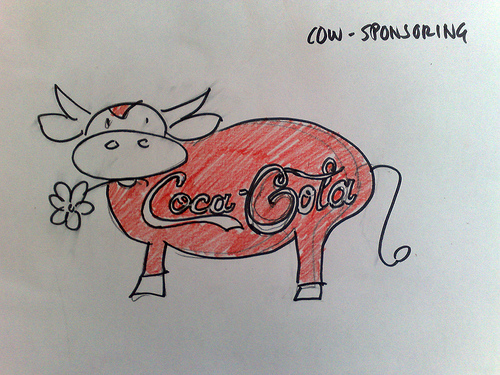 COW-SPONSORING
Coca-Cola